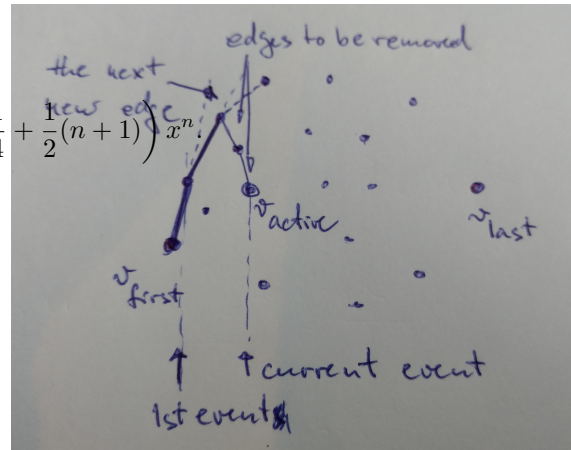 edges to be removed
the next
new edge
1/4 + 1/2(n + 1)) xⁿ.
v active
v last
v first
current event
1st event